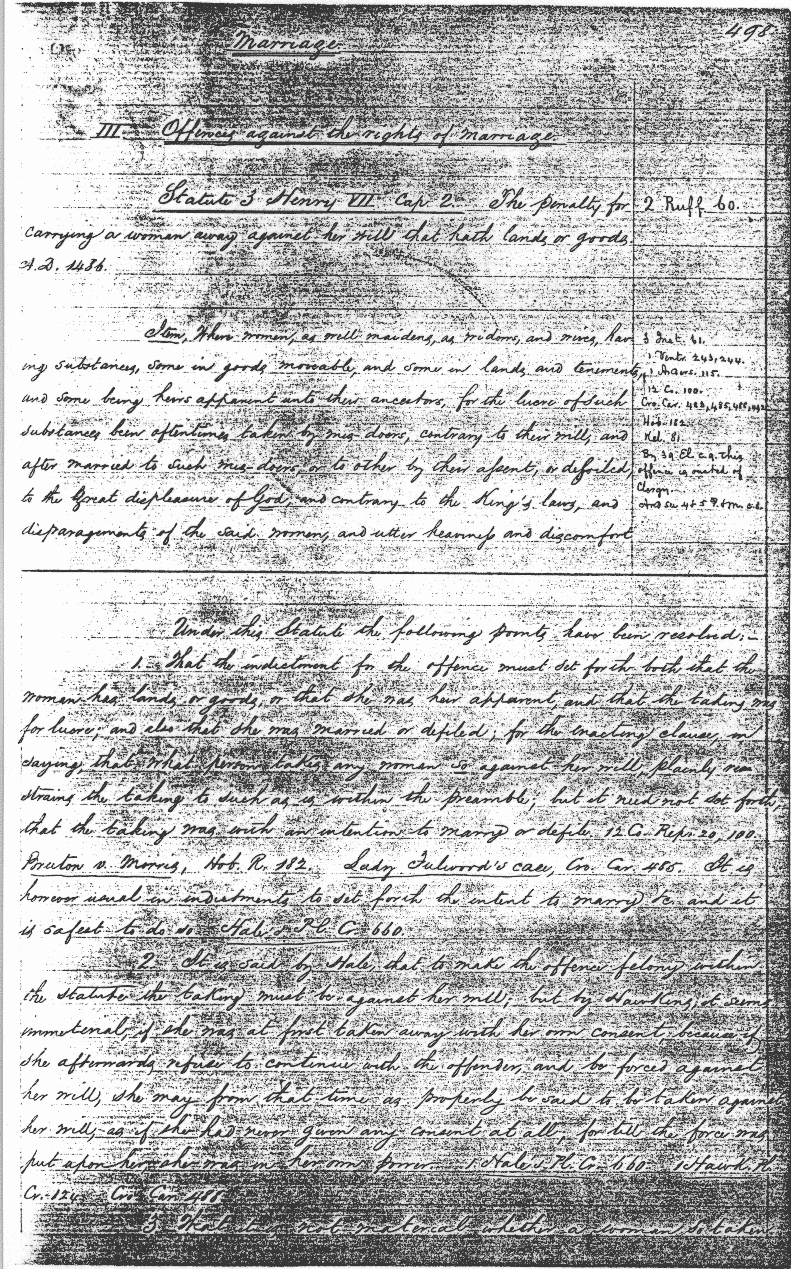 498
Marriage
III Offences against the rights of marriage
Statute 3 Henry VII Cap. 2. The penalty for
2 Ruff 60.
carrying a woman away against her will that hath lands or goods.
A.D. 1486.
Item, Where women, as well maidens, as widows, and wives, hav-
ing substances, some in goods moveable, and some in lands and tenements,
and some being heirs apparent unto their ancestors, for the lucre of such
substances been oftentimes taken by mis-doers, contrary to their will, and
after married to such mis-doers, or to other by their assent, or defoiled,
to the Great displeasure of God, and contrary to the King's laws, and
disparagements of the said women, and utter heaviness and discomfort
3 Inst. 61.
1 Ventr 243, 244.
1 115.
12 Co. 100.
Cro. Car. 485, 488,
Hob. 182
Kel. 81.
By 39 El. c. 9. this
offence is ousted of
Clergy.
And see 4 & 5 P. & M. c. 8.
Under this Statute the following points have been resolved:—
1. That the indictment for the offence must set forth both that the
woman has lands or goods, or that she was heir apparent, and that the taking was
for lucre; and also that she was married or defiled; for the enacting clause, in
saying, that what person takes any woman so against her will, plainly re-
strains the taking to such as is within the preamble; but it need not set forth,
that the taking was with an intention to marry or defile. 12 Co. Rep. 20, 100.
Bruton v. Morris, Hob. R. 182. Lady Fulwood's case, Cro. Car. 485. It is
however usual in indictments to set forth the intent to marry &c. and it
is safest to do so. Hale's Pl. Cr. 660.
2. It is said by Hale, that to make the offence felony within
the statute the taking must be against her will; but by Hawkins, it seems
immaterial, if she was at first taken away with her own consent, because if
she afterwards refuse to continue with the offender, and be forced against
her will, she may from that time as properly be said to be taken against
her will, as if she had never given any consent at all; for till the force was
put upon her she was in her own power. 1 Hale's Pl. Cr. 660 1 Hawk. Pl.
Cr. 124. Cro. Car. 488.
3. That it is not material whether a woman so taken